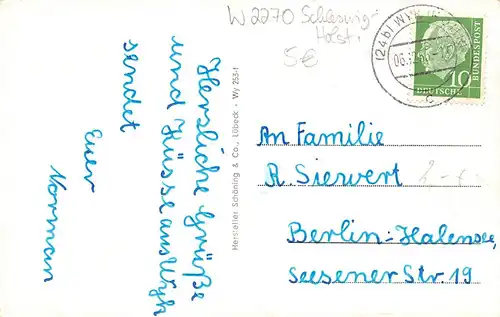 W 2270 Schleswig-
Holst.
5€
(24b) WYK
06.12.60
c
10
DEUTSCHE BUNDESPOST
Herzliche Grüße
und Küsse aus Wyk
sendet
Euer
Norman
Hersteller Schöning & Co., Lübeck · Wy 253-1
An Familie
R. Siewert
Berlin-Halensee,
Seesener Str. 19